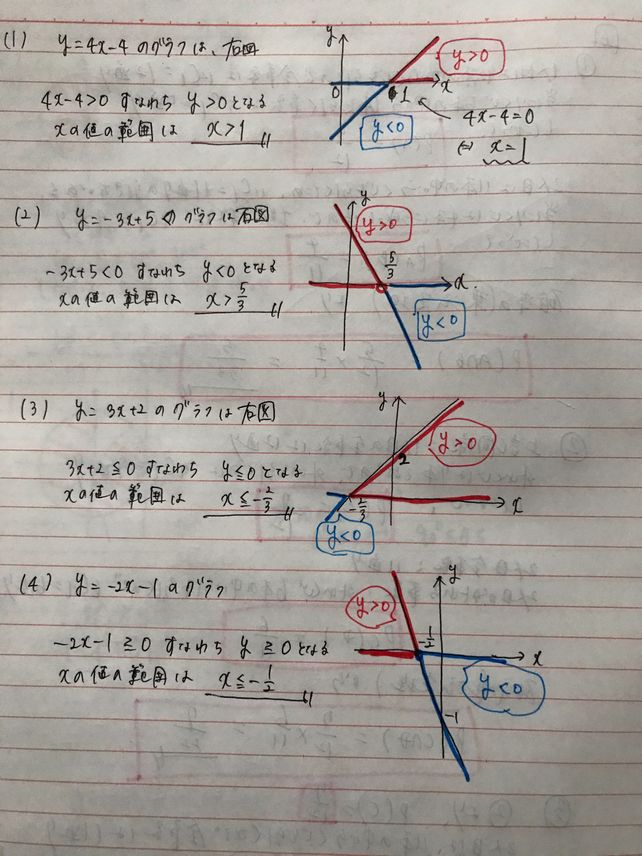 (1) y=4x-4 のグラフは、右図
y
y>0
4x-4>0 すなわち y>0となる
0
1
x
xの値の範囲は x>1
y<0
4x-4=0
⇔ x=1
(2) y=-3x+5 のグラフは右図
y
y>0
-3x+5<0 すなわち y<0となる
5/3
x
xの値の範囲は x>5/3
y<0
(3) y=3x+2 のグラフは右図
y
y>0
2
3x+2≦0 すなわち y≦0となる
xの値の範囲は x≦-2/3
-2/3
x
y<0
(4) y=-2x-1 のグラフ
y
y>0
-2x-1≧0 すなわち y≧0となる
-1/2
x
xの値の範囲は x≦-1/2
y<0
-1